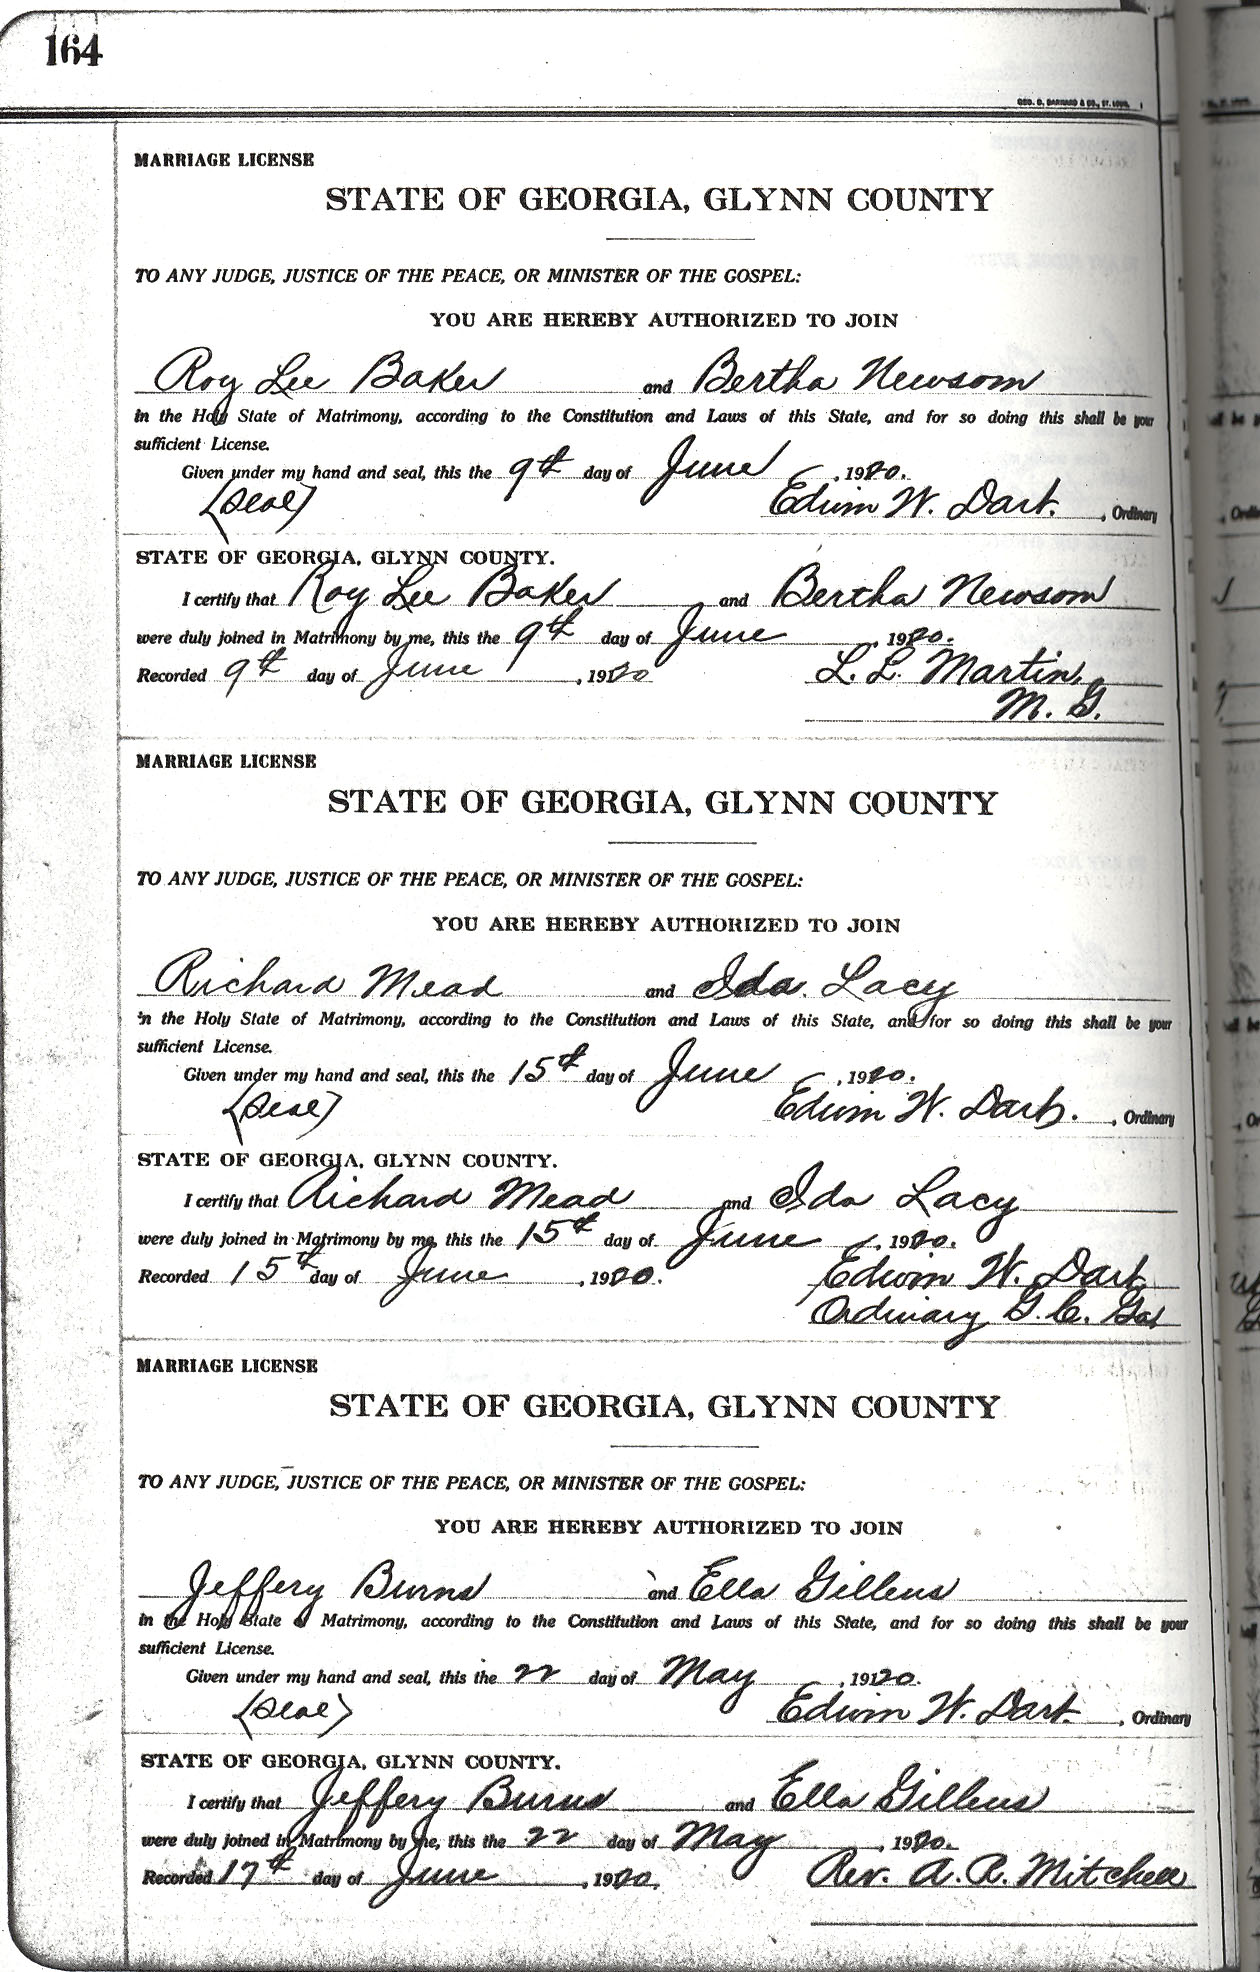 164
GEO. D. BARNARD & CO., ST. LOUIS.
MARRIAGE LICENSE
STATE OF GEORGIA, GLYNN COUNTY
TO ANY JUDGE, JUSTICE OF THE PEACE, OR MINISTER OF THE GOSPEL:
YOU ARE HEREBY AUTHORIZED TO JOIN
Roy Lee Baker and Bertha Newsom
in the Holy State of Matrimony, according to the Constitution and Laws of this State, and for so doing this shall be your
sufficient License.
Given under my hand and seal, this the 9th day of June, 1920.
(Seal) Edwin W. Dart., Ordinary
STATE OF GEORGIA, GLYNN COUNTY.
I certify that Roy Lee Baker and Bertha Newsom
were duly joined in Matrimony by me, this the 9th day of June, 1920.
Recorded 9th day of June, 1920 L. L. Martin,
M. G.
MARRIAGE LICENSE
STATE OF GEORGIA, GLYNN COUNTY
TO ANY JUDGE, JUSTICE OF THE PEACE, OR MINISTER OF THE GOSPEL:
YOU ARE HEREBY AUTHORIZED TO JOIN
Richard Mead and Ida Lacy
in the Holy State of Matrimony, according to the Constitution and Laws of this State, and for so doing this shall be your
sufficient License.
Given under my hand and seal, this the 15th day of June, 1920.
(Seal) Edwin W. Dart., Ordinary
STATE OF GEORGIA, GLYNN COUNTY.
I certify that Richard Mead and Ida Lacy
were duly joined in Matrimony by me, this the 15th day of June, 1920.
Recorded 15th day of June, 1920. Edwin W. Dart
Ordinary G. C. Ga.
MARRIAGE LICENSE
STATE OF GEORGIA, GLYNN COUNTY
TO ANY JUDGE, JUSTICE OF THE PEACE, OR MINISTER OF THE GOSPEL:
YOU ARE HEREBY AUTHORIZED TO JOIN
Jeffery Burns and Ella Gillens
in the Holy State of Matrimony, according to the Constitution and Laws of this State, and for so doing this shall be your
sufficient License.
Given under my hand and seal, this the 22 day of May, 1920.
(Seal) Edwin W. Dart., Ordinary
STATE OF GEORGIA, GLYNN COUNTY.
I certify that Jeffery Burns and Ella Gillens
were duly joined in Matrimony by me, this the 22 day of May, 1920.
Recorded 17th day of June, 1920. Rev. A. R. Mitchell